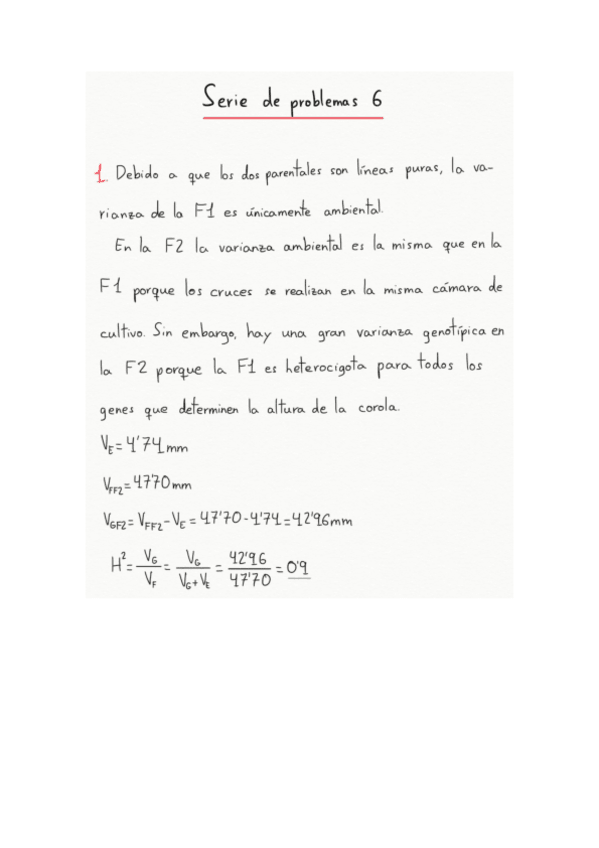 Serie de problemas 6
1. Debido a que los dos parentales son líneas puras, la va-
rianza de la F1 es únicamente ambiental.
En la F2 la varianza ambiental es la misma que en la
F1 porque los cruces se realizan en la misma cámara de
cultivo. Sin embargo, hay una gran varianza genotípica en
la F2 porque la F1 es heterocigota para todos los
genes que determinen la altura de la corola.
V_E = 4'74 mm
V_FF2 = 47'70 mm
V_GF2 = V_FF2 - V_E = 47'70 - 4'74 = 42'96 mm
H² = V_G / V_F = V_G / (V_G + V_E) = 42'96 / 47'70 = 0'9